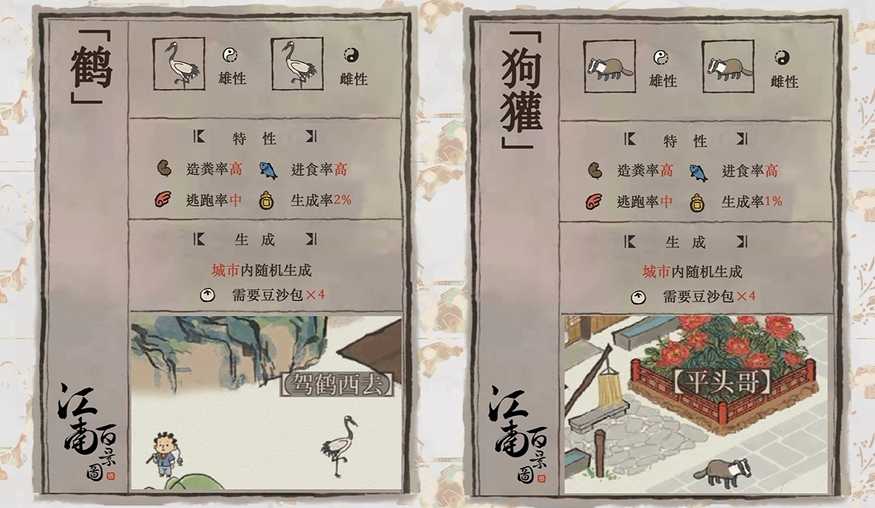 「鹤」
雄性
雌性
特性
造粪率高
进食率高
逃跑率中
生成率2%
生成
城市内随机生成
需要豆沙包×4
【驾鹤西去】
江南百景圖
「狗獾」
雄性
雌性
特性
造粪率高
进食率高
逃跑率中
生成率1%
生成
城市内随机生成
需要豆沙包×4
【平头哥】
江南百景圖